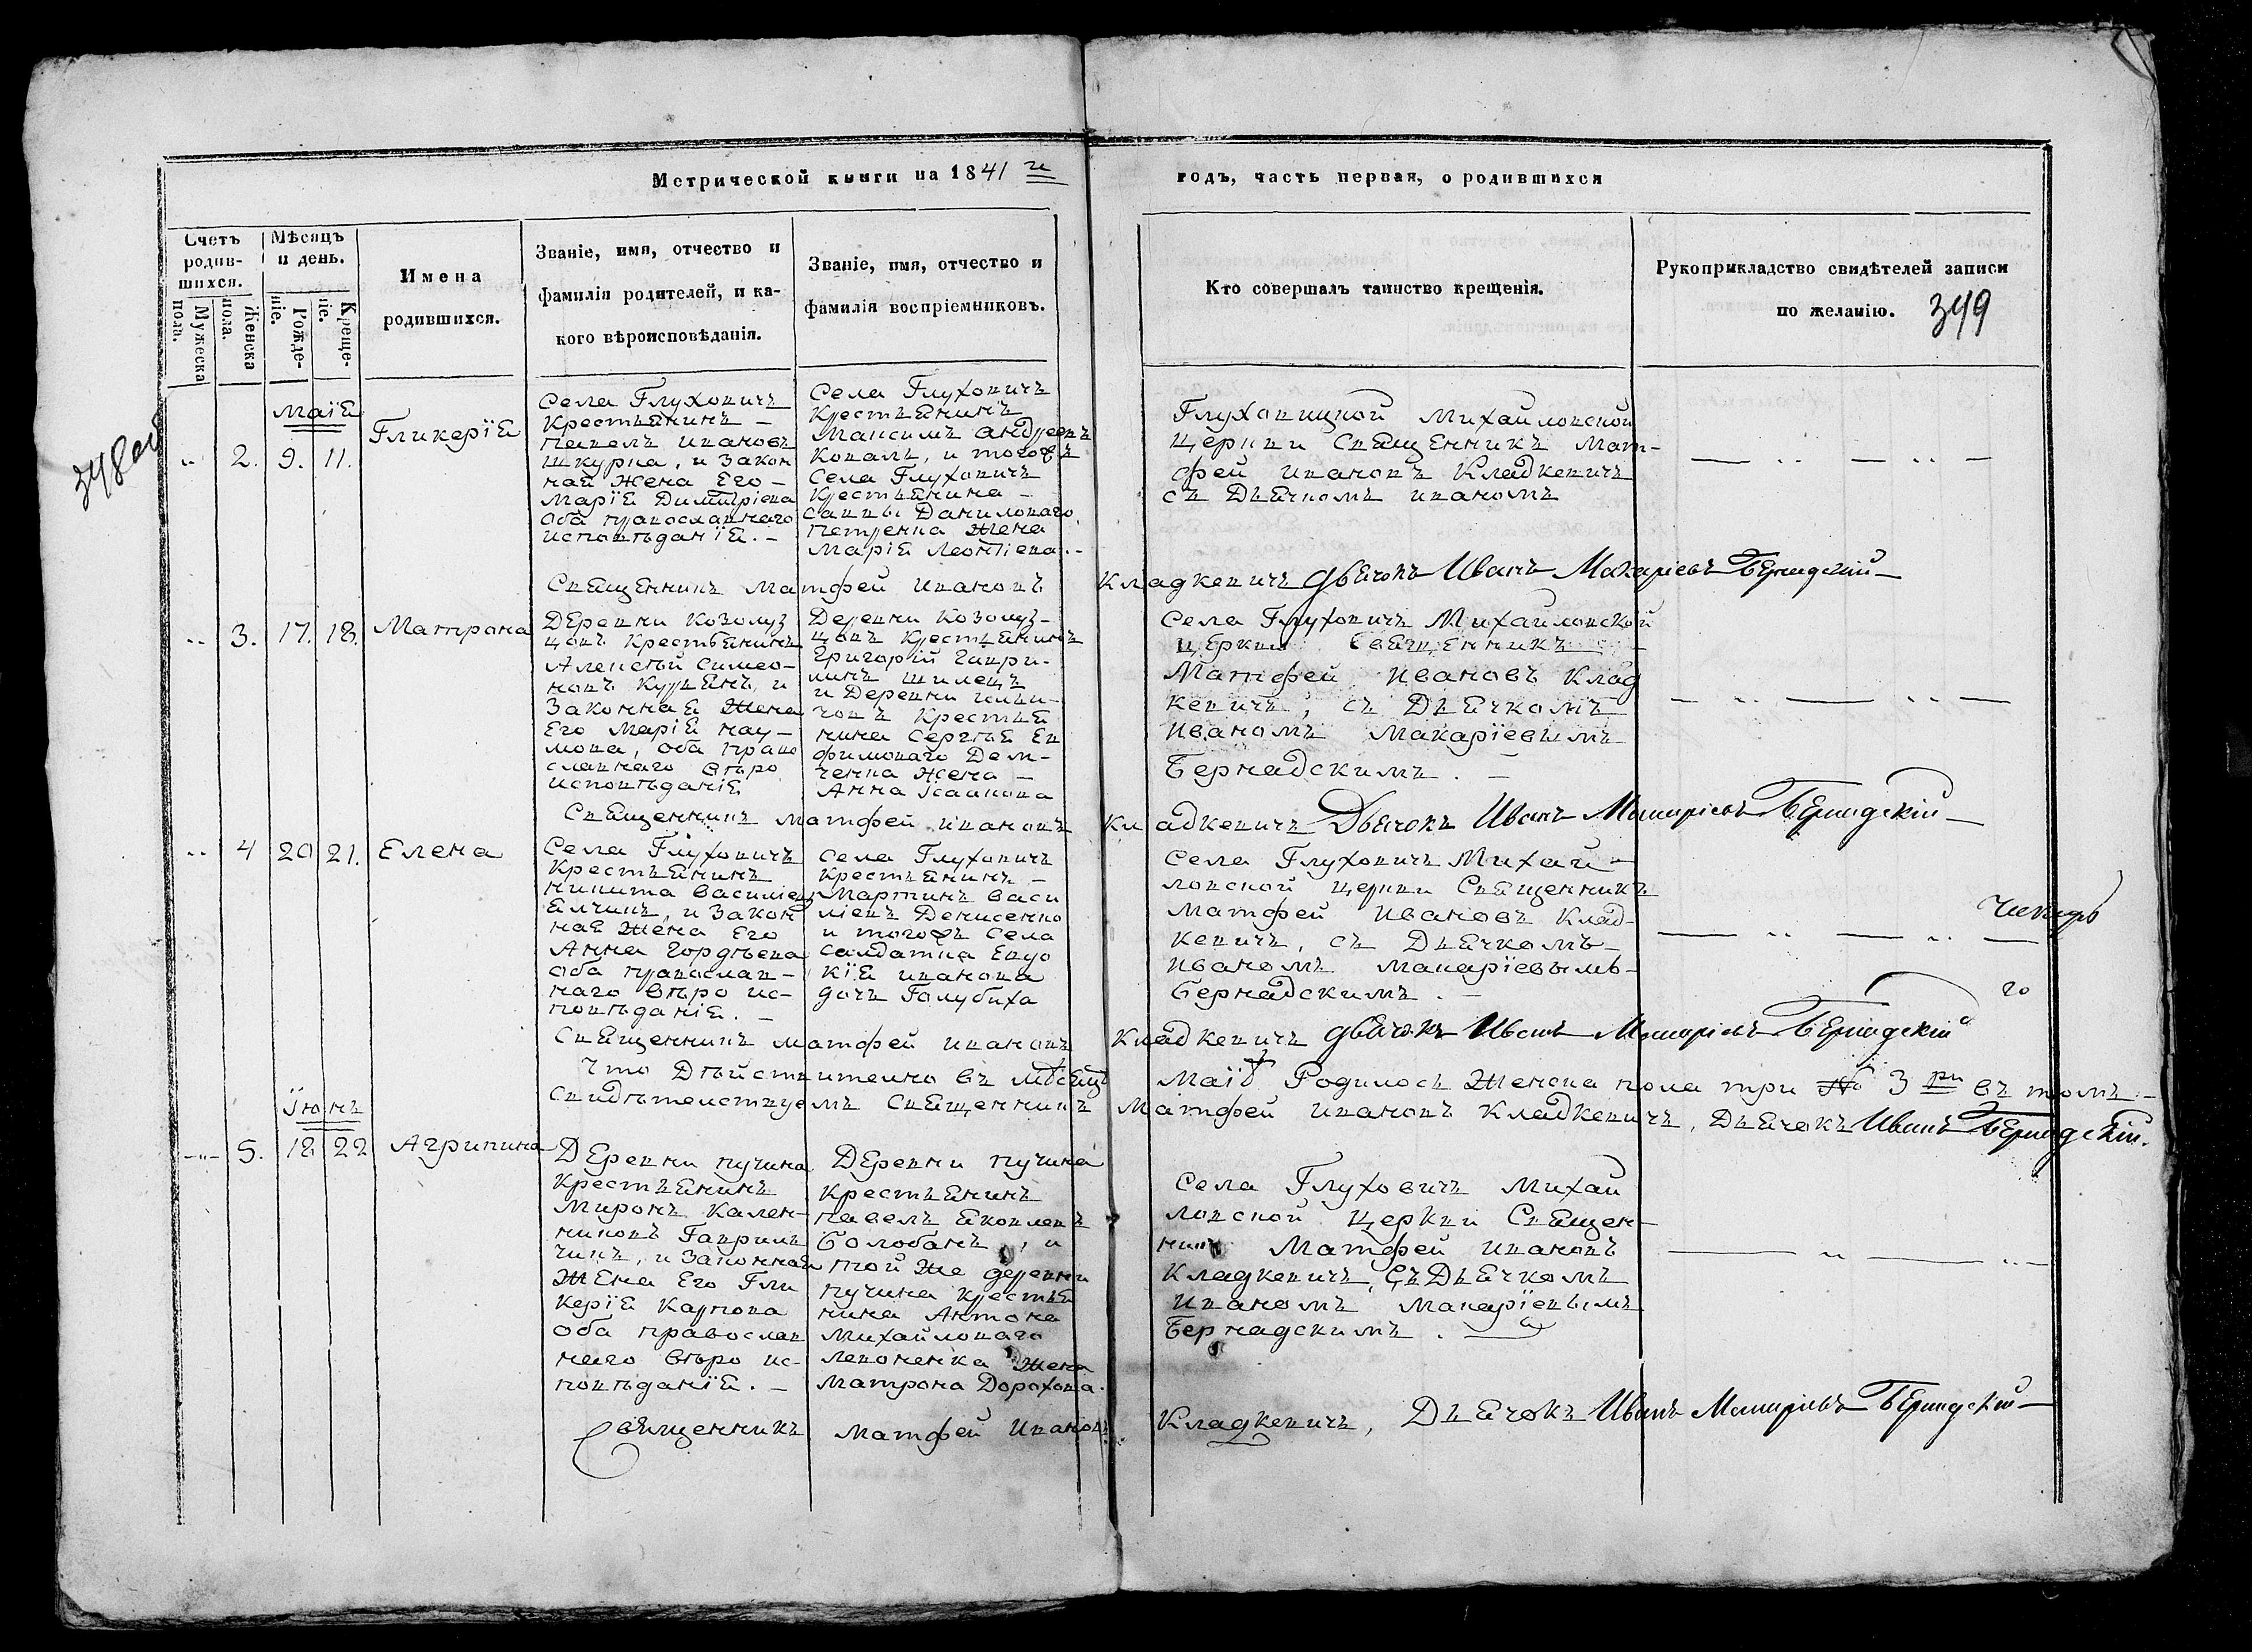 Метрической книги на 1841й годъ, часть первая, о родившихся
349
348 об
Счетъ родив-шихся.
Мужеска пола.
Женска пола.
Мѣсяцъ и день.
Рожде-ніе.
Креще-ніе.
Имена родившихся.
Званіе, имя, отчество и
фамилія родителей, и ка-
кого вѣроисповѣданія.
Званіе, имя, отчество и
фамилія воспріемниковъ.
Кто совершалъ таинство крещенія.
Рукоприкладство свидѣтелей записи
по желанію.
Маія
2. 9. 11.
Гликерїя
Села Глуховичъ
Крестьянинъ –
Павелъ Ивановъ
Шкурка, и закон
ная жена Его –
Марїя Димитріева
Оба православнаго
исповѣданїя. –
Села Глуховичъ
Крестьянинъ
Максимъ Андреевъ
Коваль, и тогожъ
Села Глуховичъ
Крестьянина –
Саввы Даниловаго
Петренка Жена
Марія Леонтіева. –
Глуховицкой Михайловской
церкви Священникъ Мат-
фей Ивановъ Кладкевичъ
съ Дьячкомъ Иваномъ
Священникъ Матфей Ивановъ Кладкевичъ Дьячокъ Иванъ Макаріевъ Бернадскій
3. 17. 18.
Матрона
Деревни Козолуз
цовъ Крестьянинъ
Алексѣй Симео-
новъ Курьянъ, и
Законная Жена
Его Марія Нау-
мова, оба право
славнаго вѣро
исповѣданія
Деревни Козолуз-
цовъ Крестьянинъ
Григорій Гаври-
ловъ Шилецъ
и Деревни
Крестья
нина Сергѣя Ев
фимоваго Дем-
ченка Жена –
Анна Исаакова
Села Глуховичъ Михайловской
церкви Священникъ
Матфей Ивановъ Клад
кевичъ, съ Дьячкомъ
Иваномъ Макаріевымъ
Бернадскимъ. –
Священникъ Матфей Ивановъ Кладкевичъ Дьячокъ Иванъ Макаріевъ Бернадскій
4 20 21.
Елена
Села Глуховичъ
Крестьянинъ
Никита Василіев
Ялчикъ, и закон
ная Жена Его
Анна Гордѣева
Оба православ-
наго вѣро ис-
повѣданія. –
Села Глуховичъ
Крестьянинъ –
Мартинъ Васи
ліевъ Денисенко
и тогожъ Села
Салдатка Евдо
кія Иванова
дочь Голубиха
Села Глуховичъ Михай-
ловской церкви Священникъ
Матфей Ивановъ Клад-
кевичъ, съ Дьячкомъ –
Иваномъ Макарїевымъ –
Бернадскимъ. –
Священникъ Матфей Ивановъ Кладкевичъ Дьячокъ Иванъ Макаріевъ Бернадскій
Что Дѣйствително въ Мѣсяцѣ Маїѣ Родилось Женска пола три 3ри въ томъ –
свидѣтелствуемъ Священникъ Матфей Ивановъ Кладкевичъ, Дьячокъ Иванъ Бернадскій.
Їюнь
5. 18 22
Агрипина
Деревни Пучина
Крестьянинъ
Миронъ Кален-
никовъ Гаврил
чикъ, и законная
Жена Его Гли
керїя Карпова
Оба православ
наго вѣро ис-
повѣданїя. –
Деревни Пучина
Крестьянинъ
Павелъ Яковлевъ
Болобанъ, и
той же деревни
Пучина Крестья
нина Антона
Михайловаго
Левоненка Жена
Матрона Дорохова.
Села Глуховичъ Михай
ловской Церкви Священ-
никъ Матфей Ивановъ
Кладкевичъ, съ Дьячкомъ
Иваномъ Макарїевымъ
Бернадскимъ.
Священникъ Матфей Ивановъ Кладкевичъ, Дьячокъ Иванъ Макаріевъ Бернадскій